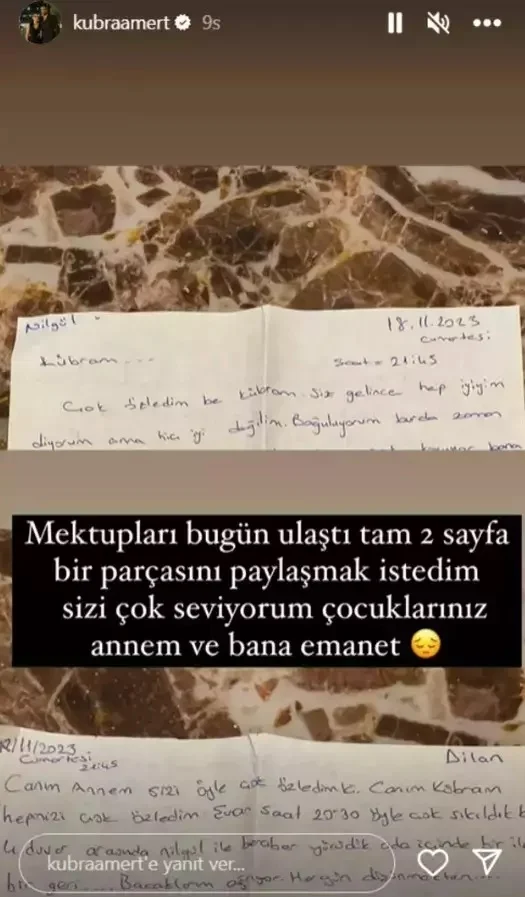 kubraamert 9s
Nilgül
18.11.2023
Cumartesi
Kübram...
Saat = 21:45
Çok özledim be Kübram. Siz gelince hep iyiyim
diyorum ama hiç iyi değilim. Boğuluyorum burda zaman
bana
Mektupları bugün ulaştı tam 2 sayfa
bir parçasını paylaşmak istedim
sizi çok seviyorum çocuklarınız
annem ve bana emanet 😔
/11/2023
Cumartesi
21:45
Dilan
Canım Annem sizi öyle çok özledimki. Canım Kübram
hepinizi çok özledim. Saat 20:30 öyle çok sıkıldık k
4 duvar arasında nilgül ile beraber yürüdük oda içinde bir ile
kubraamert'e yanıt ver...
bir geri..... Bacaklarım ağrıyor. Hergün